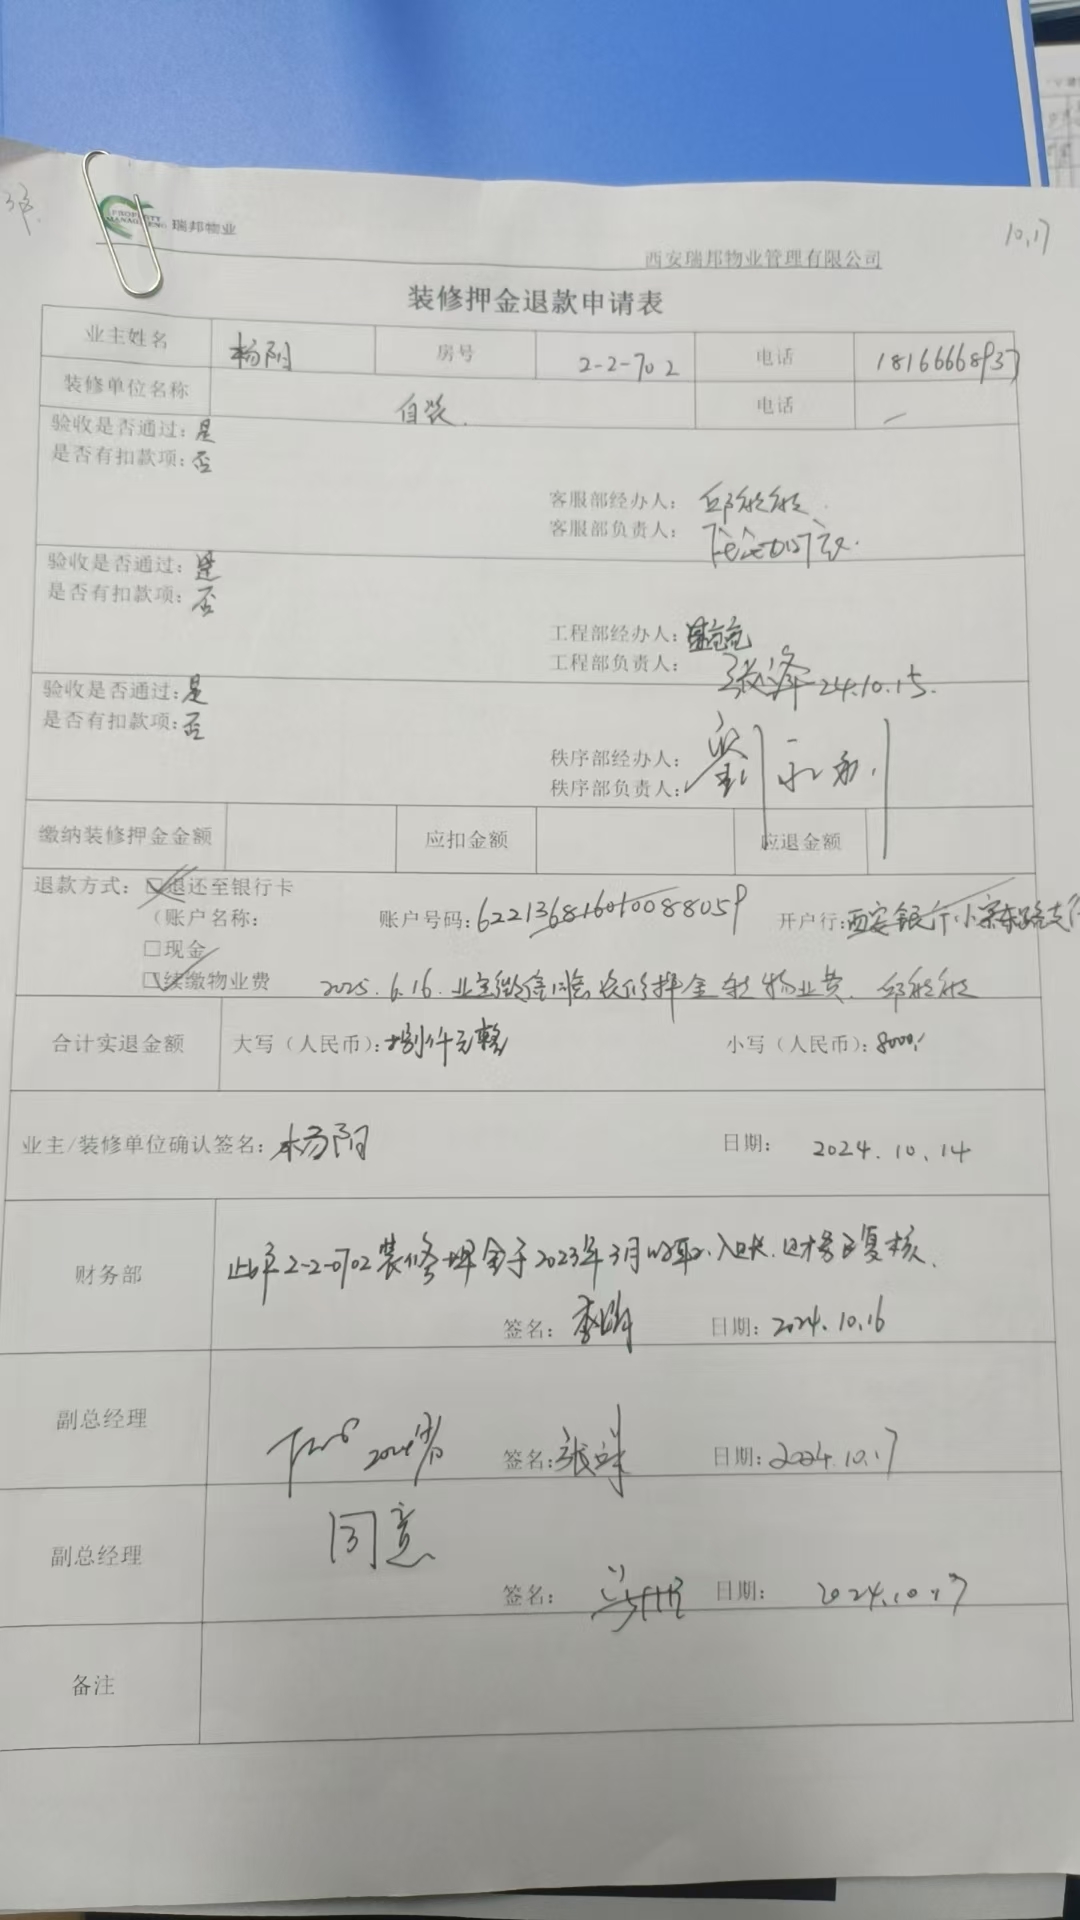 10.17
PROPERTY
MANAGEMENG 瑞邦物业
西安瑞邦物业管理有限公司
装修押金退款申请表
业主姓名 杨阳 房号 2-2-702 电话 18166668937
装修单位名称 自装. 电话 —
验收是否通过: 是
是否有扣款项: 否
客服部经办人:
客服部负责人:
验收是否通过: 是
是否有扣款项: 否
工程部经办人:
工程部负责人: 张泽 24.10.15.
验收是否通过: 是
是否有扣款项: 否
秩序部经办人:
秩序部负责人: 刘永利
缴纳装修押金金额 应扣金额 应退金额
退款方式: □退还至银行卡
(账户名称: 账户号码: 6221368160100088059 开户行: 西安银行小寨东路支行
□现金
□续缴物业费 2025.6.16. 业主微信同意装修押金转物业费.
合计实退金额 大写(人民币): 捌仟元整 小写(人民币): 8000.
业主/装修单位确认签名: 杨阳 日期: 2024.10.14
财务部 此户2-2-0702装修押金于2023年3月收取入账.财务已复核.
签名: 日期: 2024.10.16
副总经理 签名: 日期: 2024.10.17
副总经理 同意
签名: 日期: 2024.10.17
备注